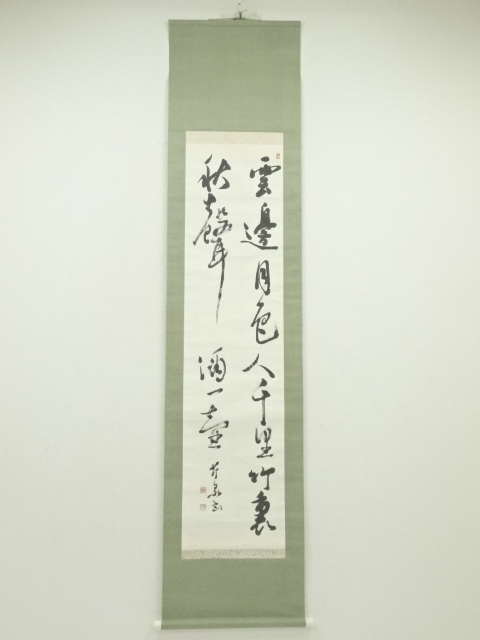 雲邊月色人千里竹裏
秋聲酒一壺
書